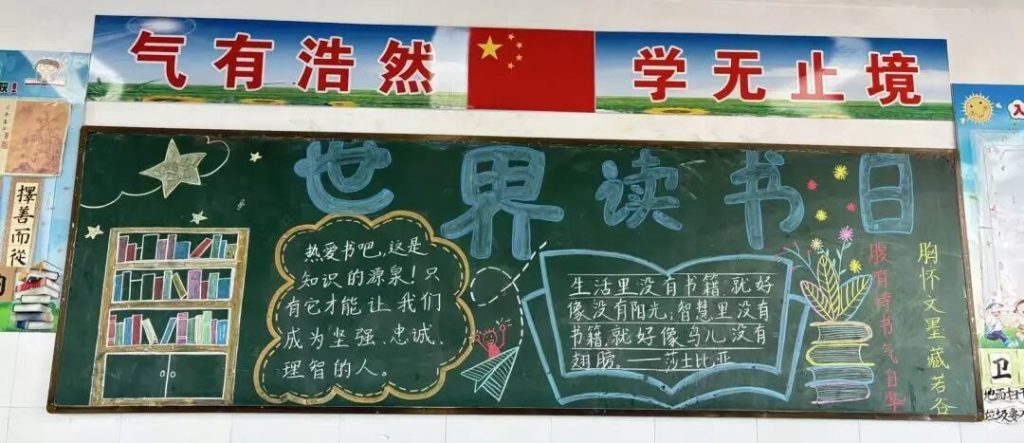 气有浩然
学无止境
世界读书日
择善而從
热爱书吧,这是
知识的源泉!只
有它才能让我们
成为坚强、忠诚、
理智的人。
生活里没有书籍,就好
像没有阳光;智慧里没有
书籍,就好像鸟儿没有
翅膀。——莎士比亚
腹有诗书气自华
胸怀文墨藏若谷
卫